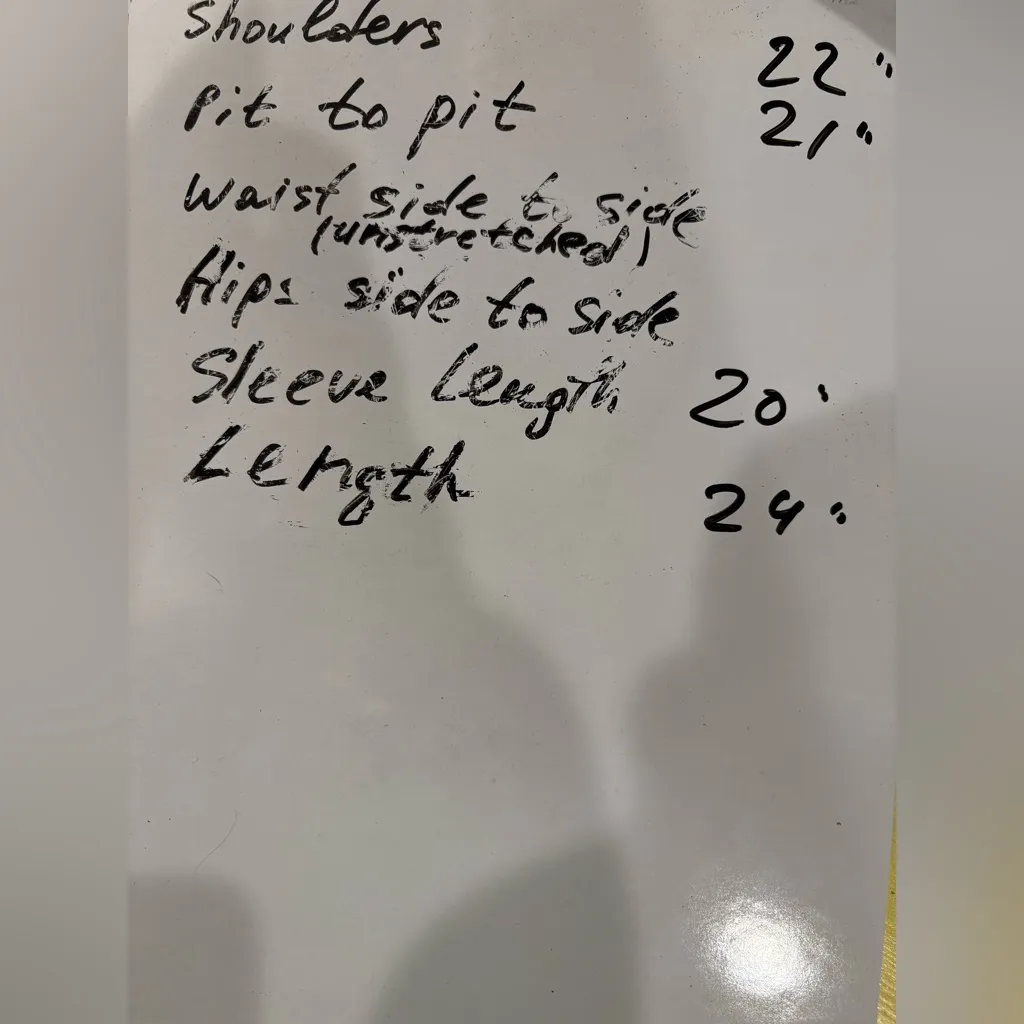 Shoulders 22"
Pit to pit 21"
Waist side to side
(unstretched)
Hips side to side
Sleeve Length 20'
Length 24"